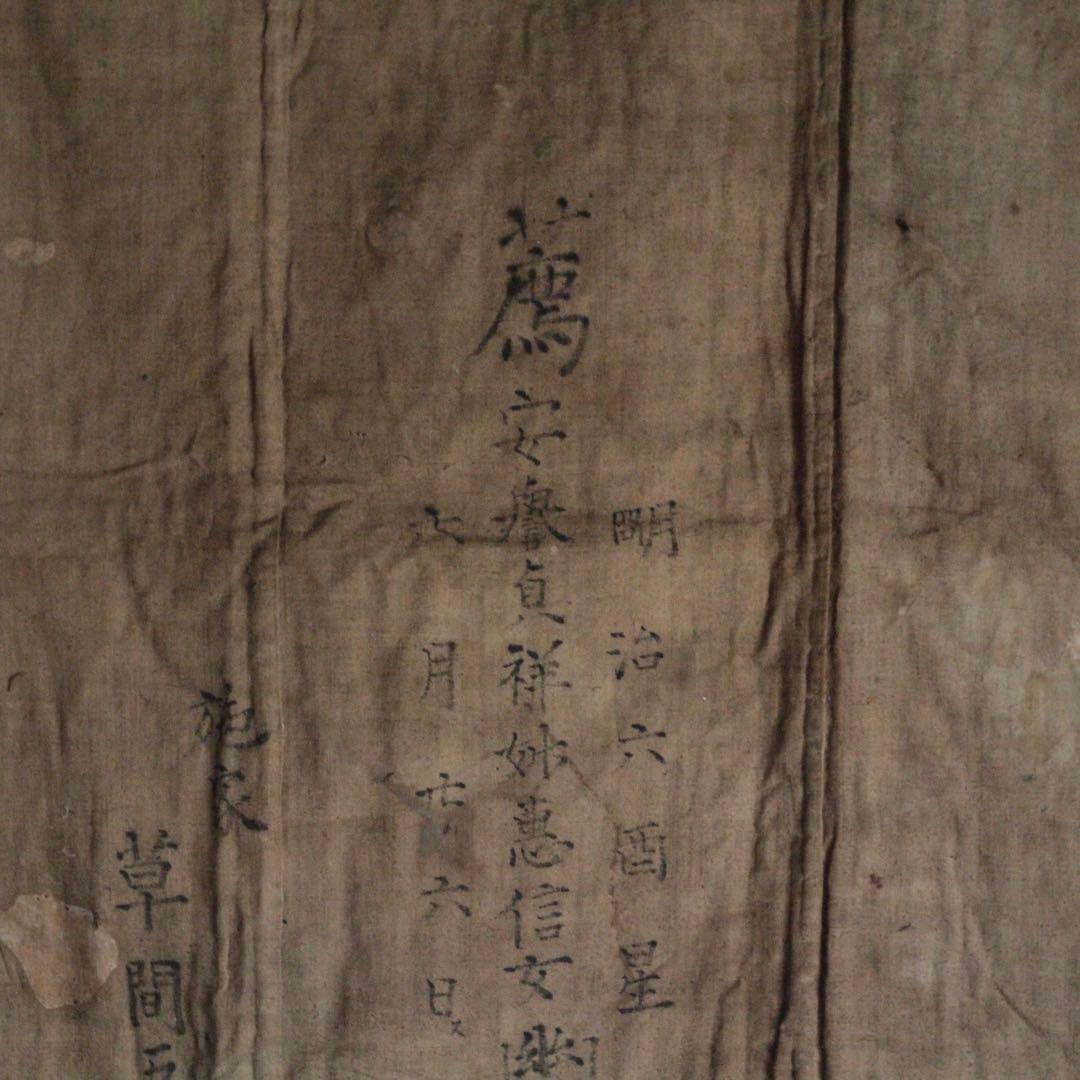 明治六酉星
薦安譽貞祥妙惠信女
七月廿六日
施
草間